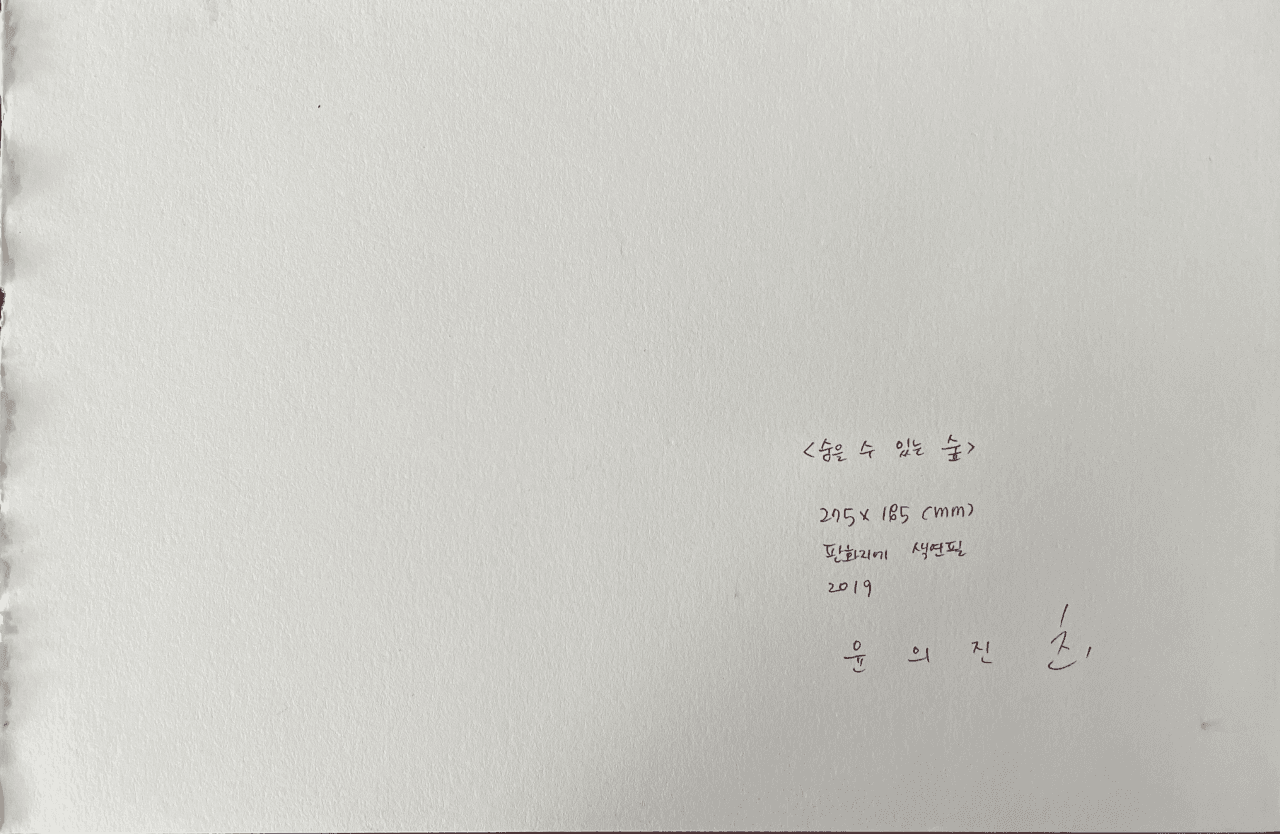 <숨을 수 있는 숲>
275 x 185 (mm)
판화지에 색연필
2019
윤 의 진